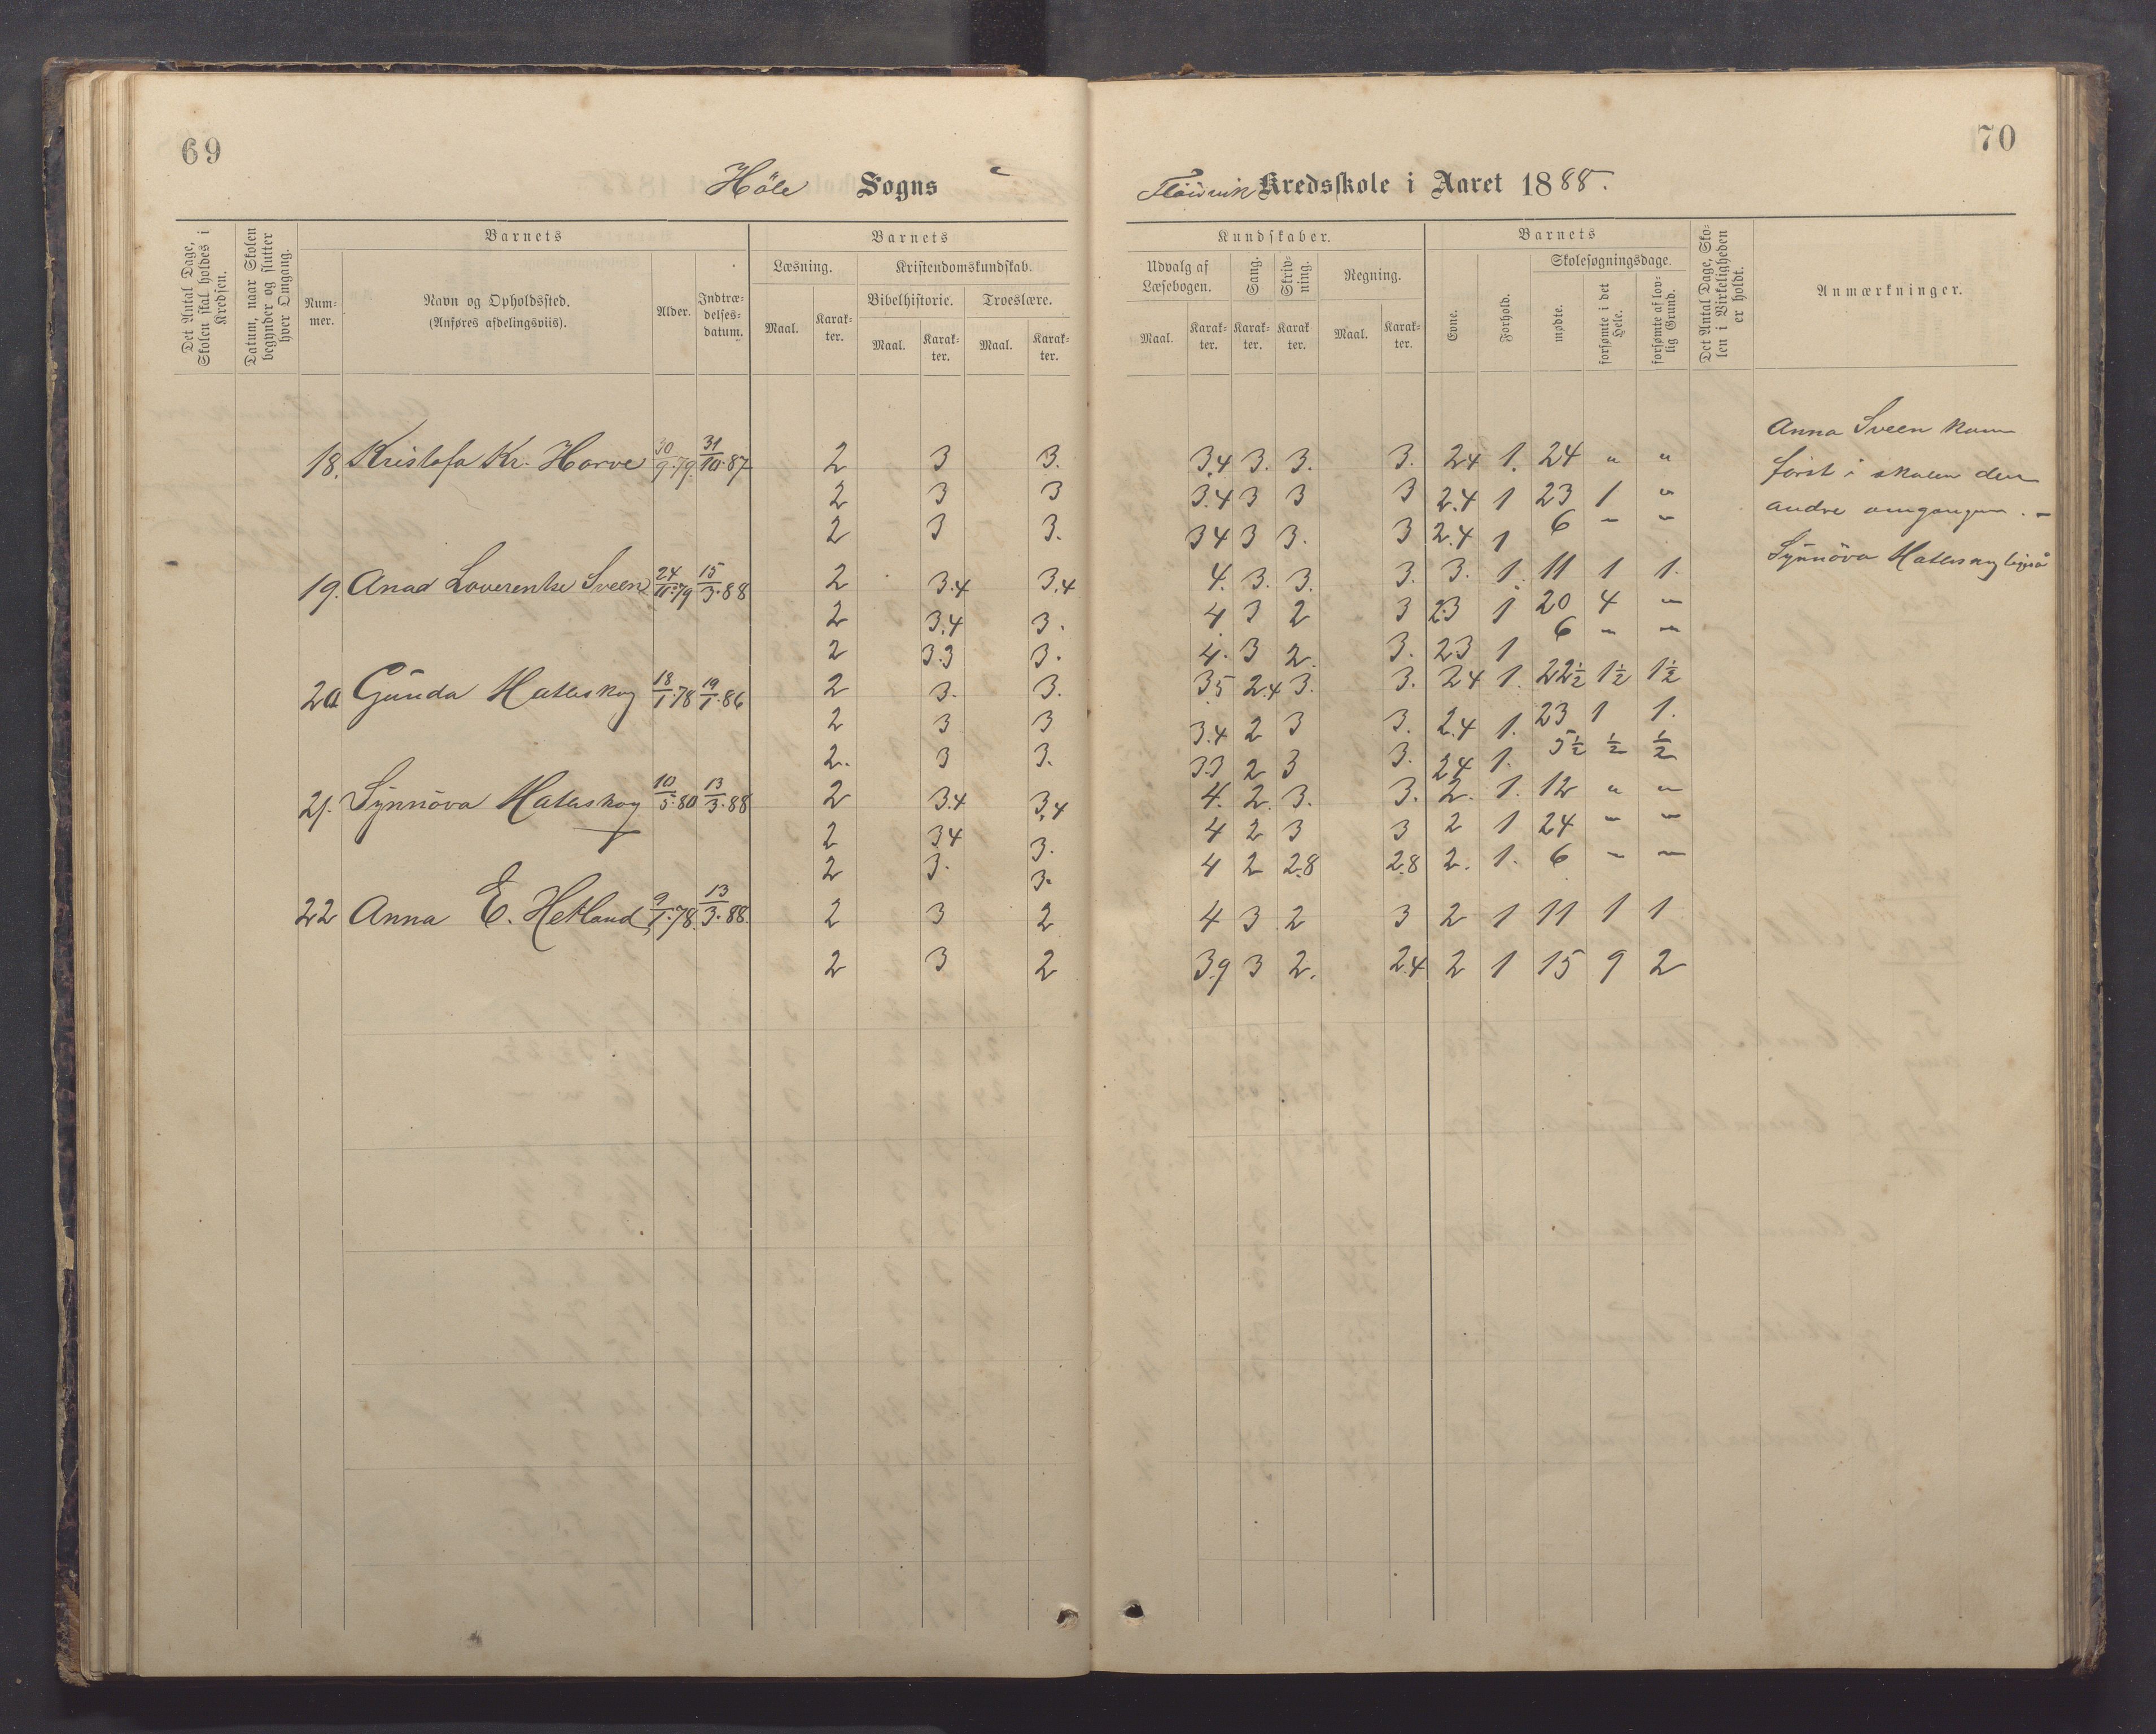 69
70
Höle Sogns
Kredsskole i Aaret 1888.
Det Antal Dage, Skolen skal holdes i Kredsen.
Datum, naar Skolen begynder og slutter hver Omgang.
Barnets
Num-
mer.
Navn og Opholdssted.
(Anføres afdelingsviis).
Alder.
Indtræ-
delses-
datum.
Barnets
Læsning.
Kristendomskundskab.
Bibelhistorie.
Troeslære.
Maal.
Karak-
ter.
Maal.
Karak-
ter.
Maal.
Karak-
ter.
Kundskaber.
Udvalg af
Læsebogen.
Sang.
Skriv-
ning.
Regning.
Maal.
Karak-
ter.
Karak-
ter.
Karak-
ter.
Maal.
Karak-
ter.
Barnets
Evne.
Forhold.
Skolesøgningsdage.
mødte.
forsømte i det
Hele.
forsømte af lov-
lig Grund.
Det Antal Dage, Sko-
len i Virkeligheden
er holdt.
Anmærkninger.
18. Kristofa Kr. Horve 30/9.79. 31/10.87 2 3 3. 3.4 3. 3. 3. 24 1. 24 " "
2 3 3 3.4 3 3 3 2.4 1 23 1 "
2 3 3. 34 3 3. 3 2.4 1 6 – –
19. Anad Loverentse Sveen 24/11.79 15/3.88 2 3.4 3.4 4. 3. 3. 3. 3. 1. 11 1 1.
2 3.4 3. 4 3 2 3 2.3 1 20 4 –
2 3.3 3. 4. 3 2. 3. 23 1 6 – –
20 Gunda Hatleskog 18/1.78 19/1.86 2 3. 3. 35 2.4 3. 3. 24 1. 22½ 1½ 1½
2 3 3 3.4 2 3 3. 2.4 1. 23 1 1.
2. 3 3. 33 2 3 3. 24 1. 5½ ½ ½
21. Synnöva Hatleskog 10/5.80 13/3.88 2 3.4 3.4 4. 2. 3. 3. 2. 1. 12 " "
2 34 3. 4 2 3 3 2 1 24 – –
2 3. 3. 4 2 2.8 2.8 2. 1. 6 – –
22 Anna E. Hetland 9/1.78. 13/3.88. 2 3 2 4 3 2 3 2 1 11 1 1
2 3 2 3.9 3 2. 2.4 2 1 15 9 2
Anna Sveen kom
först i skolen den
andre omgangen. –
Synnöva Hatleskog